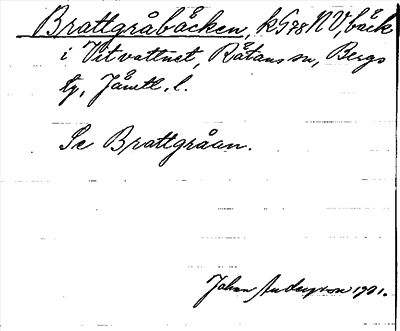 Brattgråbäcken, kG78NV, bäck
i Vitvattnet, Råtans sn, Bergs
tg, Jämtl. l.
Se Brattgråån.
Johan Anderson 1931.